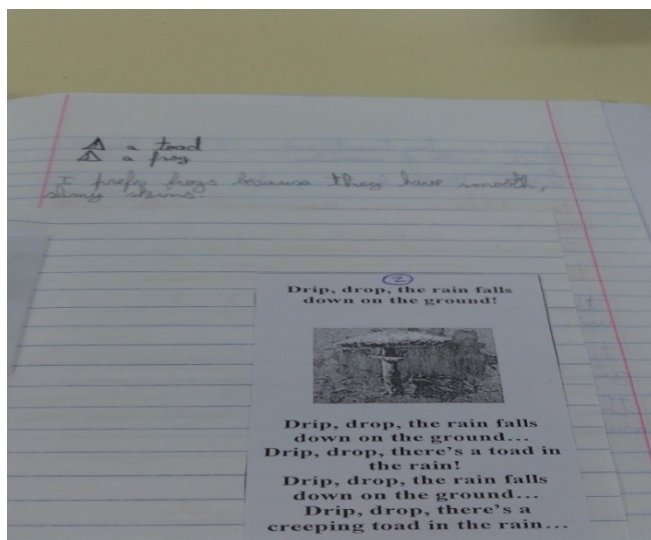 ⚠ a toad
⚠ a frog
I prefer frogs because they have smooth,
slimy skins.
2
Drip, drop, the rain falls
down on the ground!
Drip, drop, the rain falls
down on the ground...
Drip, drop, there's a toad in
the rain!
Drip, drop, the rain falls
down on the ground...
Drip, drop, there's a
creeping toad in the rain...